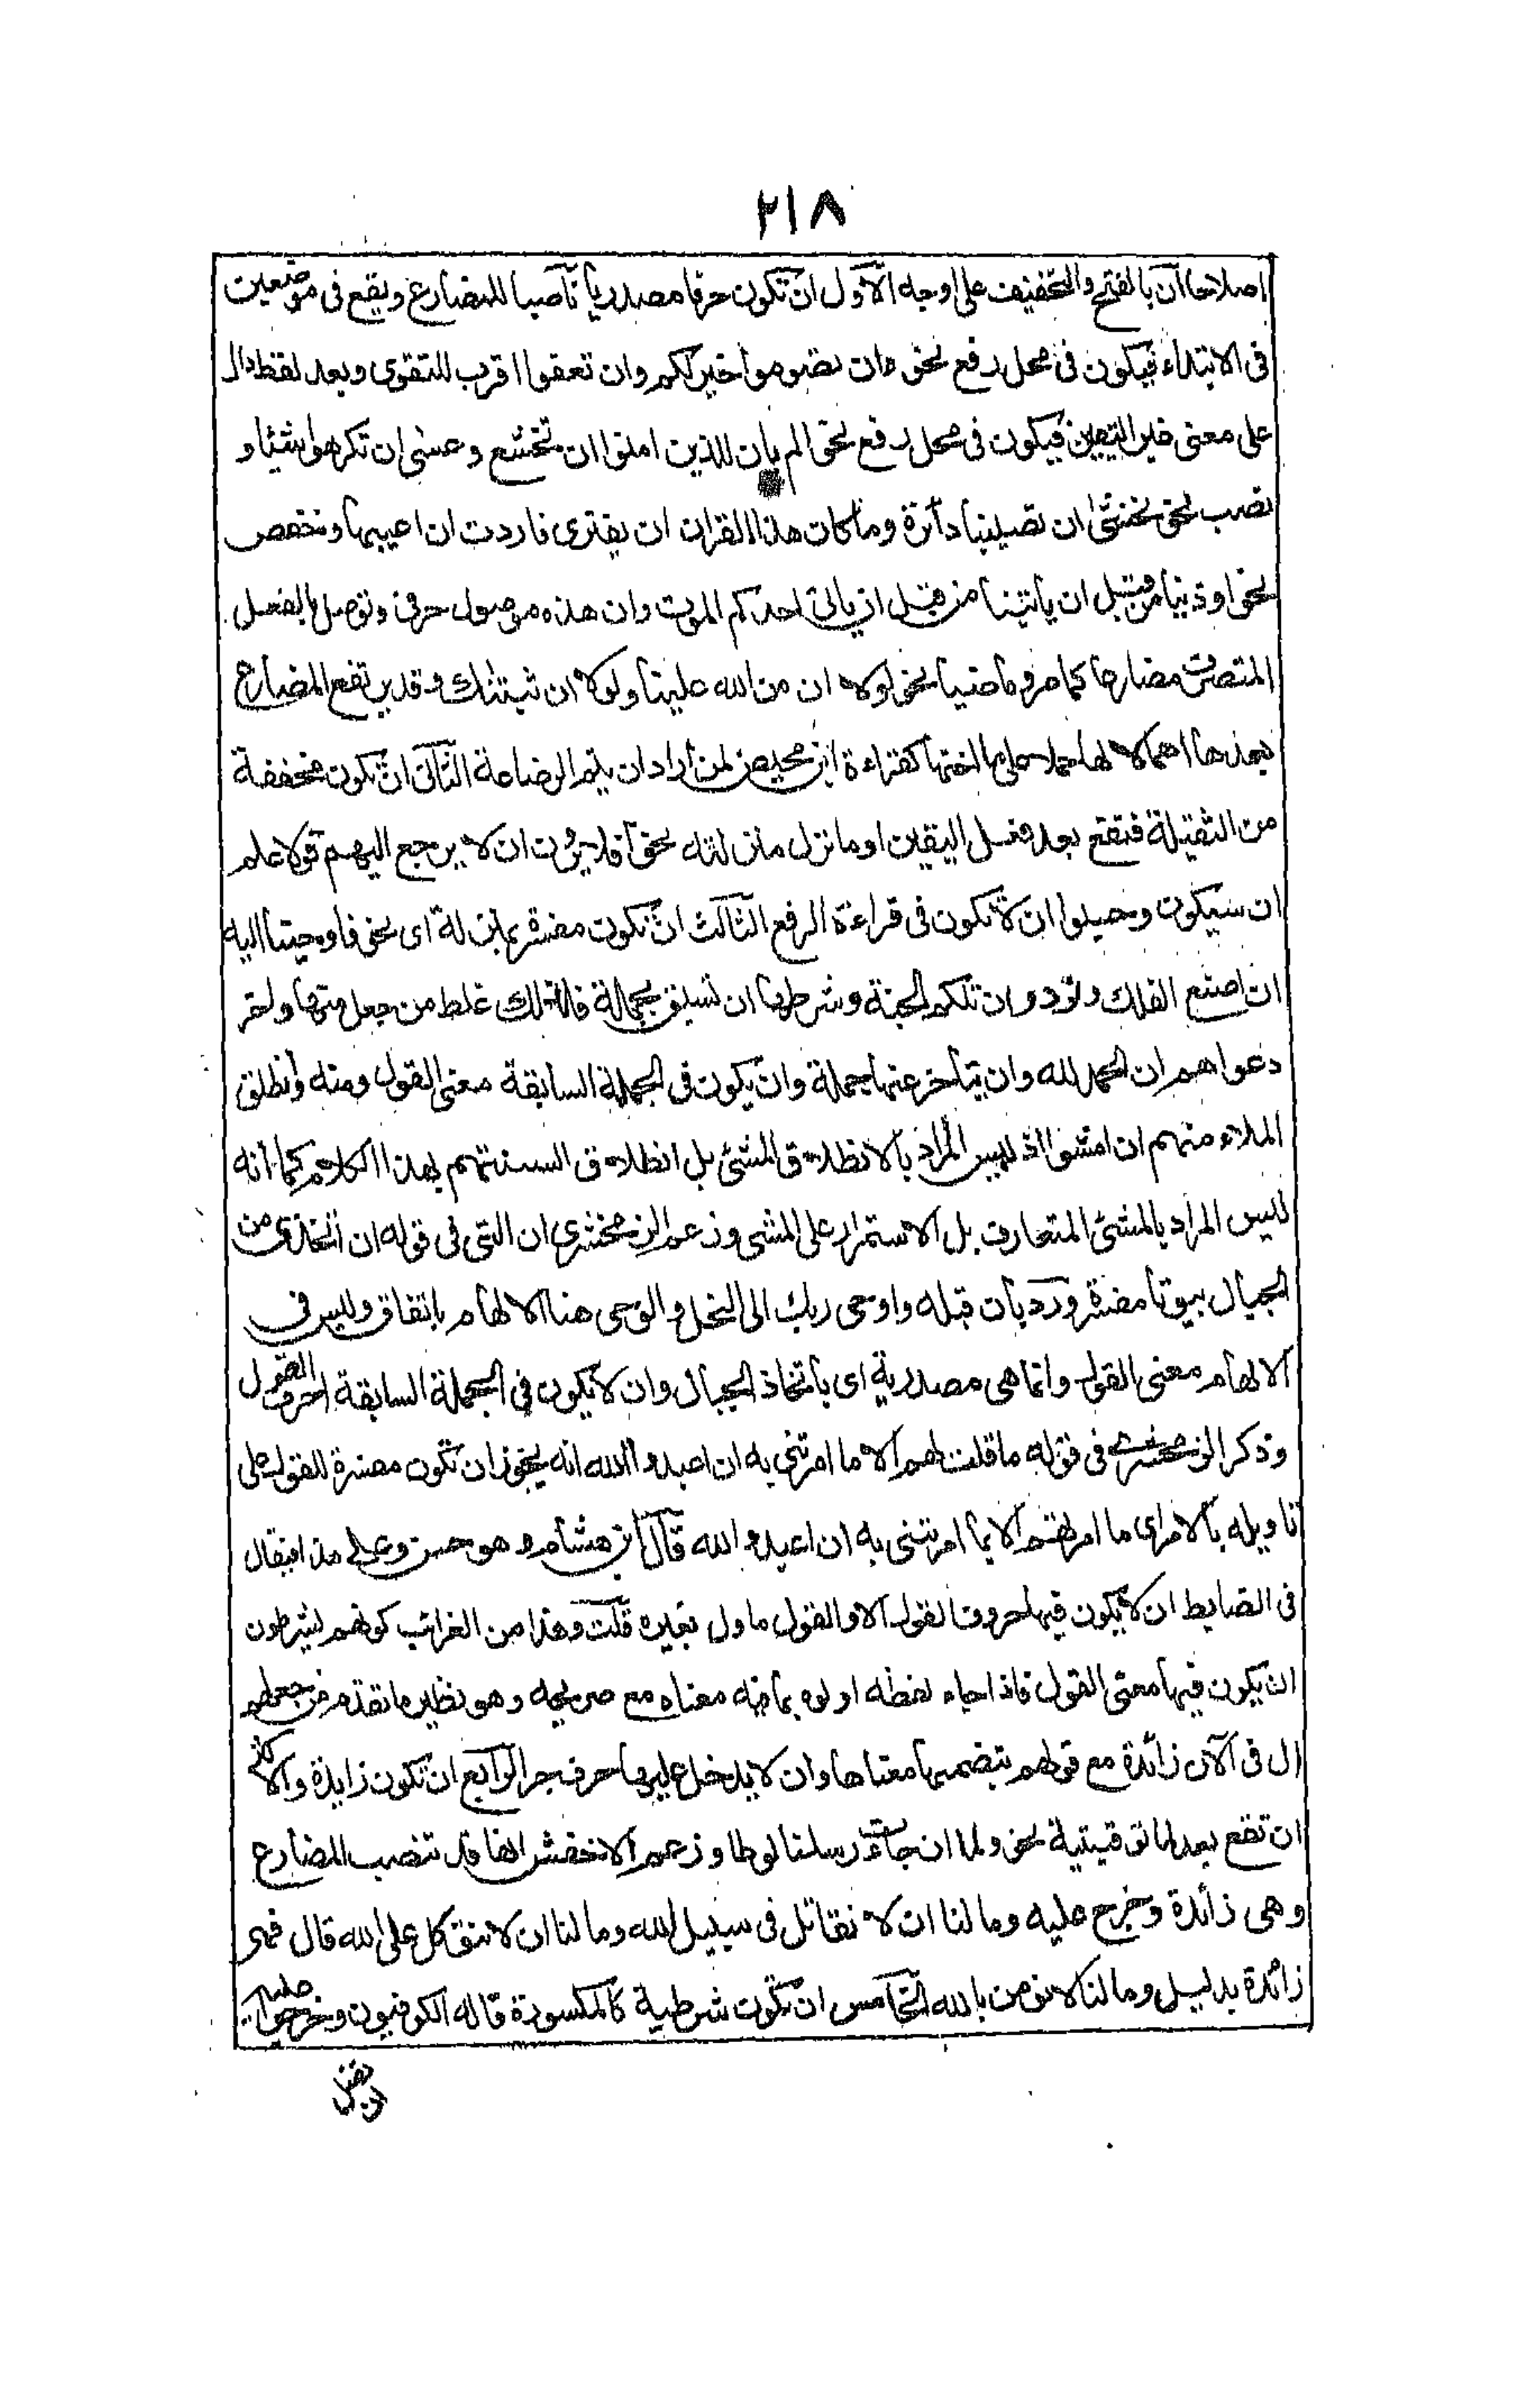 ٢١٨
اصلاحا ان بالفتح والتخفيف على اوجه الاول ان تكون حرفا مصدريا ناصبا للمضارع ويقع فى موضعين
فى الابتداء فيكون فى محل رفع نحو وان تصوموا خير لكم وان تعفوا اقرب للتقوى وبعد لفظ دال
على معنى غير اليقين فيكون فى محل رفع نحو الم يان للذين امنوا ان تخشع وعسى ان تكرهوا شيئا و
نصب نحو نخشى ان تصيبنا دائرة وما كان هذا القران ان يفترى فاردت ان اعيبها وخفض
نحو اوذينا من قبل ان ياتينا من قبل ان ياتى احدكم الموت وان هذه موصول حرفى وتوصل بالفعل
المتصرف مضارعا كما مر وماضيا نحو لولا ان من الله علينا ولولا ان ثبتنك وقد يرتفع المضارع
بعدها اهمالا لها حملا على ما اختها كقراءة ابن محيصن لمن اراد ان يتم الرضاعة الثانى ان تكون مخففة
من الثقيلة فتقع بعد فعل اليقين او ما نزل منزلته نحو افلا يرون ان لا يرجع اليهم قولا علم
ان سيكون وحسبوا ان لا تكون فى قراءة الرفع الثالث ان تكون مفسرة بمنزلة اى نحو فاوحينا اليه
ان اصنع الفلك ونودو ان تلكم الجنة وشرطها ان تسبق بجملة فلذلك غلط من جعل منها واخر
دعواهم ان الحمد لله وان يتاخر عنها جملة وان يكون فى الجملة السابقة معنى القول ومنه وانطلق
الملاء منهم ان امشوا اذ ليس المراد بالانطلاق المشى بل انطلاق السنتهم بهذا الكلام كما انه
ليس المراد بالمشى المتعارف بل الاستمرار على المشى وزعم الزمخشرى ان التى فى قوله ان اتخذى من
الجبال بيوتا مفسرة ورد بان قبله واوحى ربك الى النحل والوحى هنا الالهام باتفاق وليس فى
الالهام معنى القول وانما هى مصدرية اى باتخاذ الجبال وان لا يكون فى الجملة السابقة احرف القول
وذكر الزمخشرى فى قوله ما قلت لهم الا ما امرتنى به ان اعبدوا الله انه يجوز ان تكون مفسرة للقول على
تاويله بالامر اى ما امرتهم الا بما امرتنى به ان اعبدوا الله قال ابن هشام وهو حسن وعلى هذا فيقال
فى الضابط ان لا يكون فيها حروف القول الا والقول ماول بغيره قلت وهذا من الغرائب كونهم يشرطون
ان يكون فيها معنى القول فاذا جاء لفظه اولوه بما فيه معناه مع صريحه وهو نظير ما تقدم من جعلهم
ال فى الآن زائدة مع قولهم بتضمنها معناها وان لا يدخل عليها حرف جر الرابع ان تكون زايدة والاكثر
ان تقع بعد لما توقيتية نحو ولما ان جاءت رسلنا لوطا وزعم الاخفش انها قد تنصب المضارع
وهى زائدة وخرج عليه وما لنا ان لا نقاتل فى سبيل الله وما لنا ان لا نتوكل على الله قال فهى
زائدة بدليل وما لنا لا نومن بالله الخامس ان تكون شرطية كالمكسورة قاله الكوفيون وخرجوا عليه
ان تضل